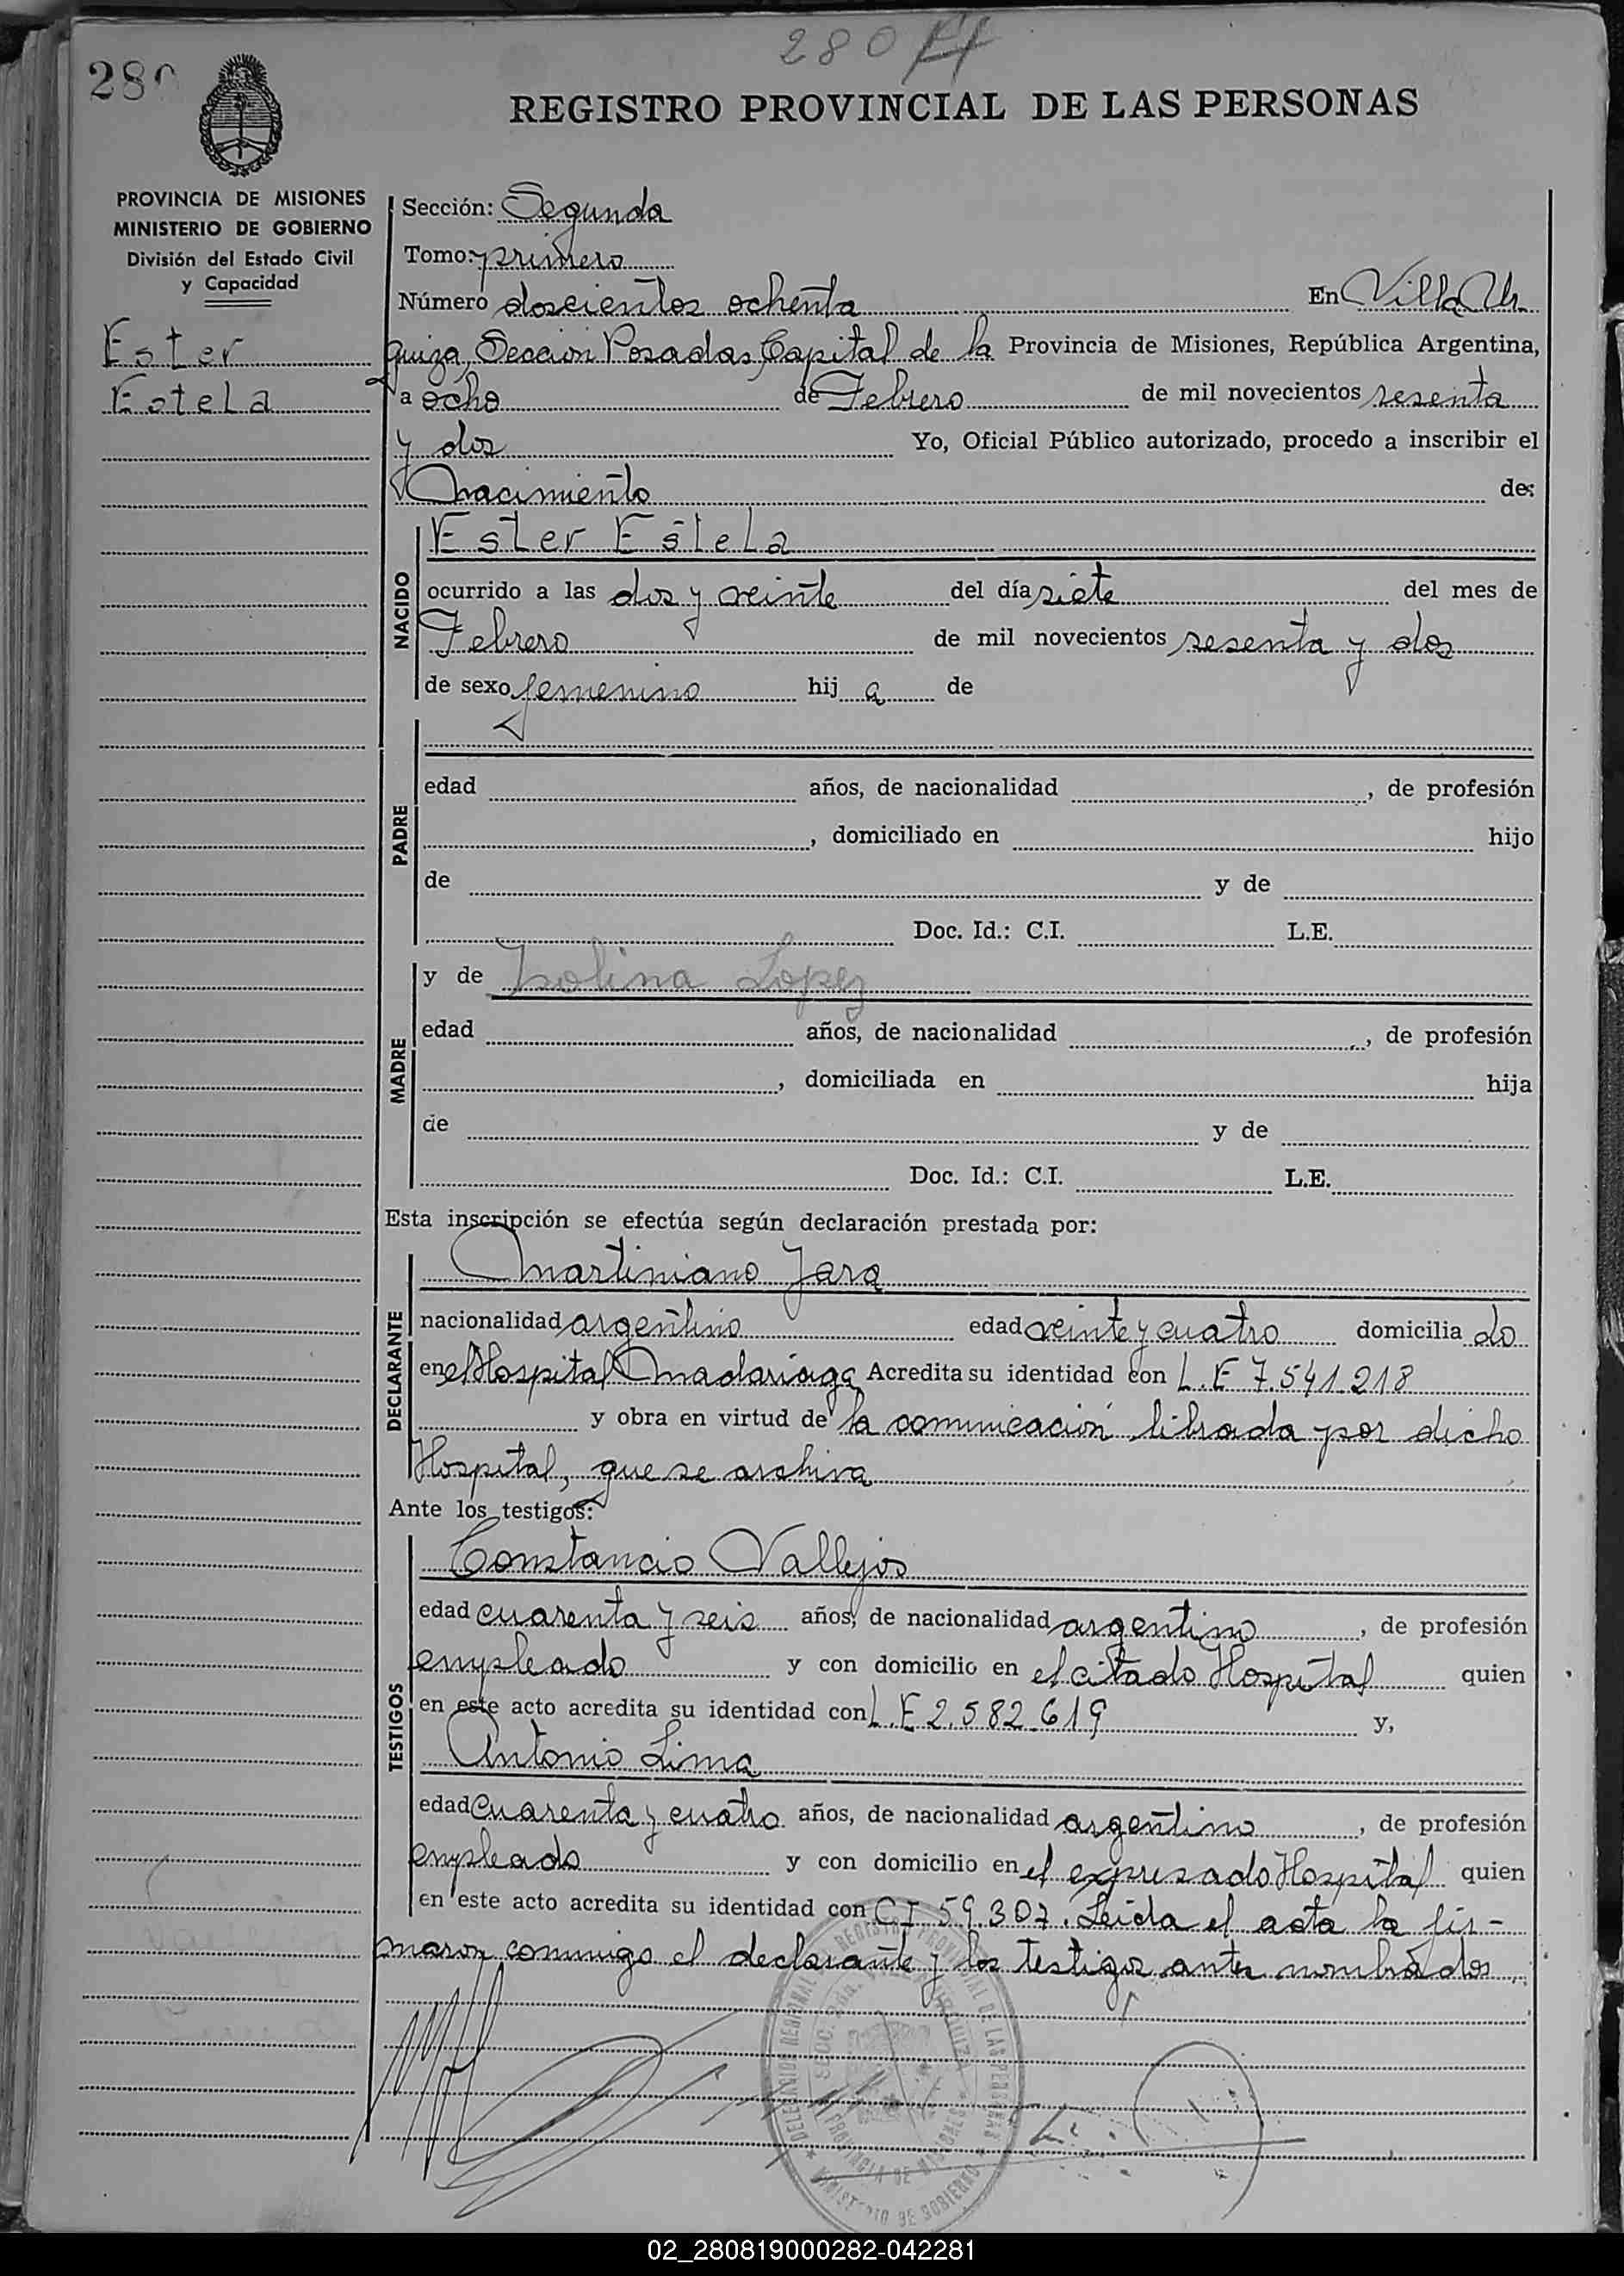 280
28
REGISTRO PROVINCIAL DE LAS PERSONAS
PROVINCIA DE MISIONES
MINISTERIO DE GOBIERNO
División del Estado Civil
y Capacidad
Ester
Estela
Sección: Segunda
Tomo: primero
Número doscientos ochenta En Villa Ur
quiza, Seccion Posadas, Capital de la Provincia de Misiones, República Argentina,
a ocho de Febrero de mil novecientos sesenta
y dos Yo, Oficial Público autorizado, procedo a inscribir el
Nacimiento de:
NACIDO
Ester Estela
ocurrido a las dos y veinte del día siete del mes de
Febrero de mil novecientos sesenta y dos
de sexo femenino hij a de
PADRE
edad años, de nacionalidad , de profesión
, domiciliado en hijo
de y de
Doc. Id.: C.I. L.E.
MADRE
y de Isolina Lopez
edad años, de nacionalidad , de profesión
, domiciliada en hija
de y de
Doc. Id.: C.I. L.E.
Esta inscripción se efectúa según declaración prestada por:
DECLARANTE
Martiniano Jara
nacionalidad argentino edad veinte y cuatro domicilia do
en el Hospital Madariaga Acredita su identidad con L.E 7.541.218
y obra en virtud de la comunicación librada por dicho
Hospital, que se archiva
Ante los testigos:
TESTIGOS
Constancio Vallejos
edad cuarenta y seis años, de nacionalidad argentino , de profesión
empleado y con domicilio en el citado Hospital quien
en este acto acredita su identidad con L.E 2.582.619 y,
Antonio Lima
edad cuarenta y cuatro años, de nacionalidad argentino , de profesión
empleado y con domicilio en el expresado Hospital quien
en este acto acredita su identidad con C.I 59.307. Leida el acta la fir-
maron conmigo el declarante y los testigos antes nombrados
REGISTRO PROVINCIAL DE LAS PERSONAS
PROVINCIA DE MISIONES
MINISTERIO DE GOBIERNO
02_280819000282-042281